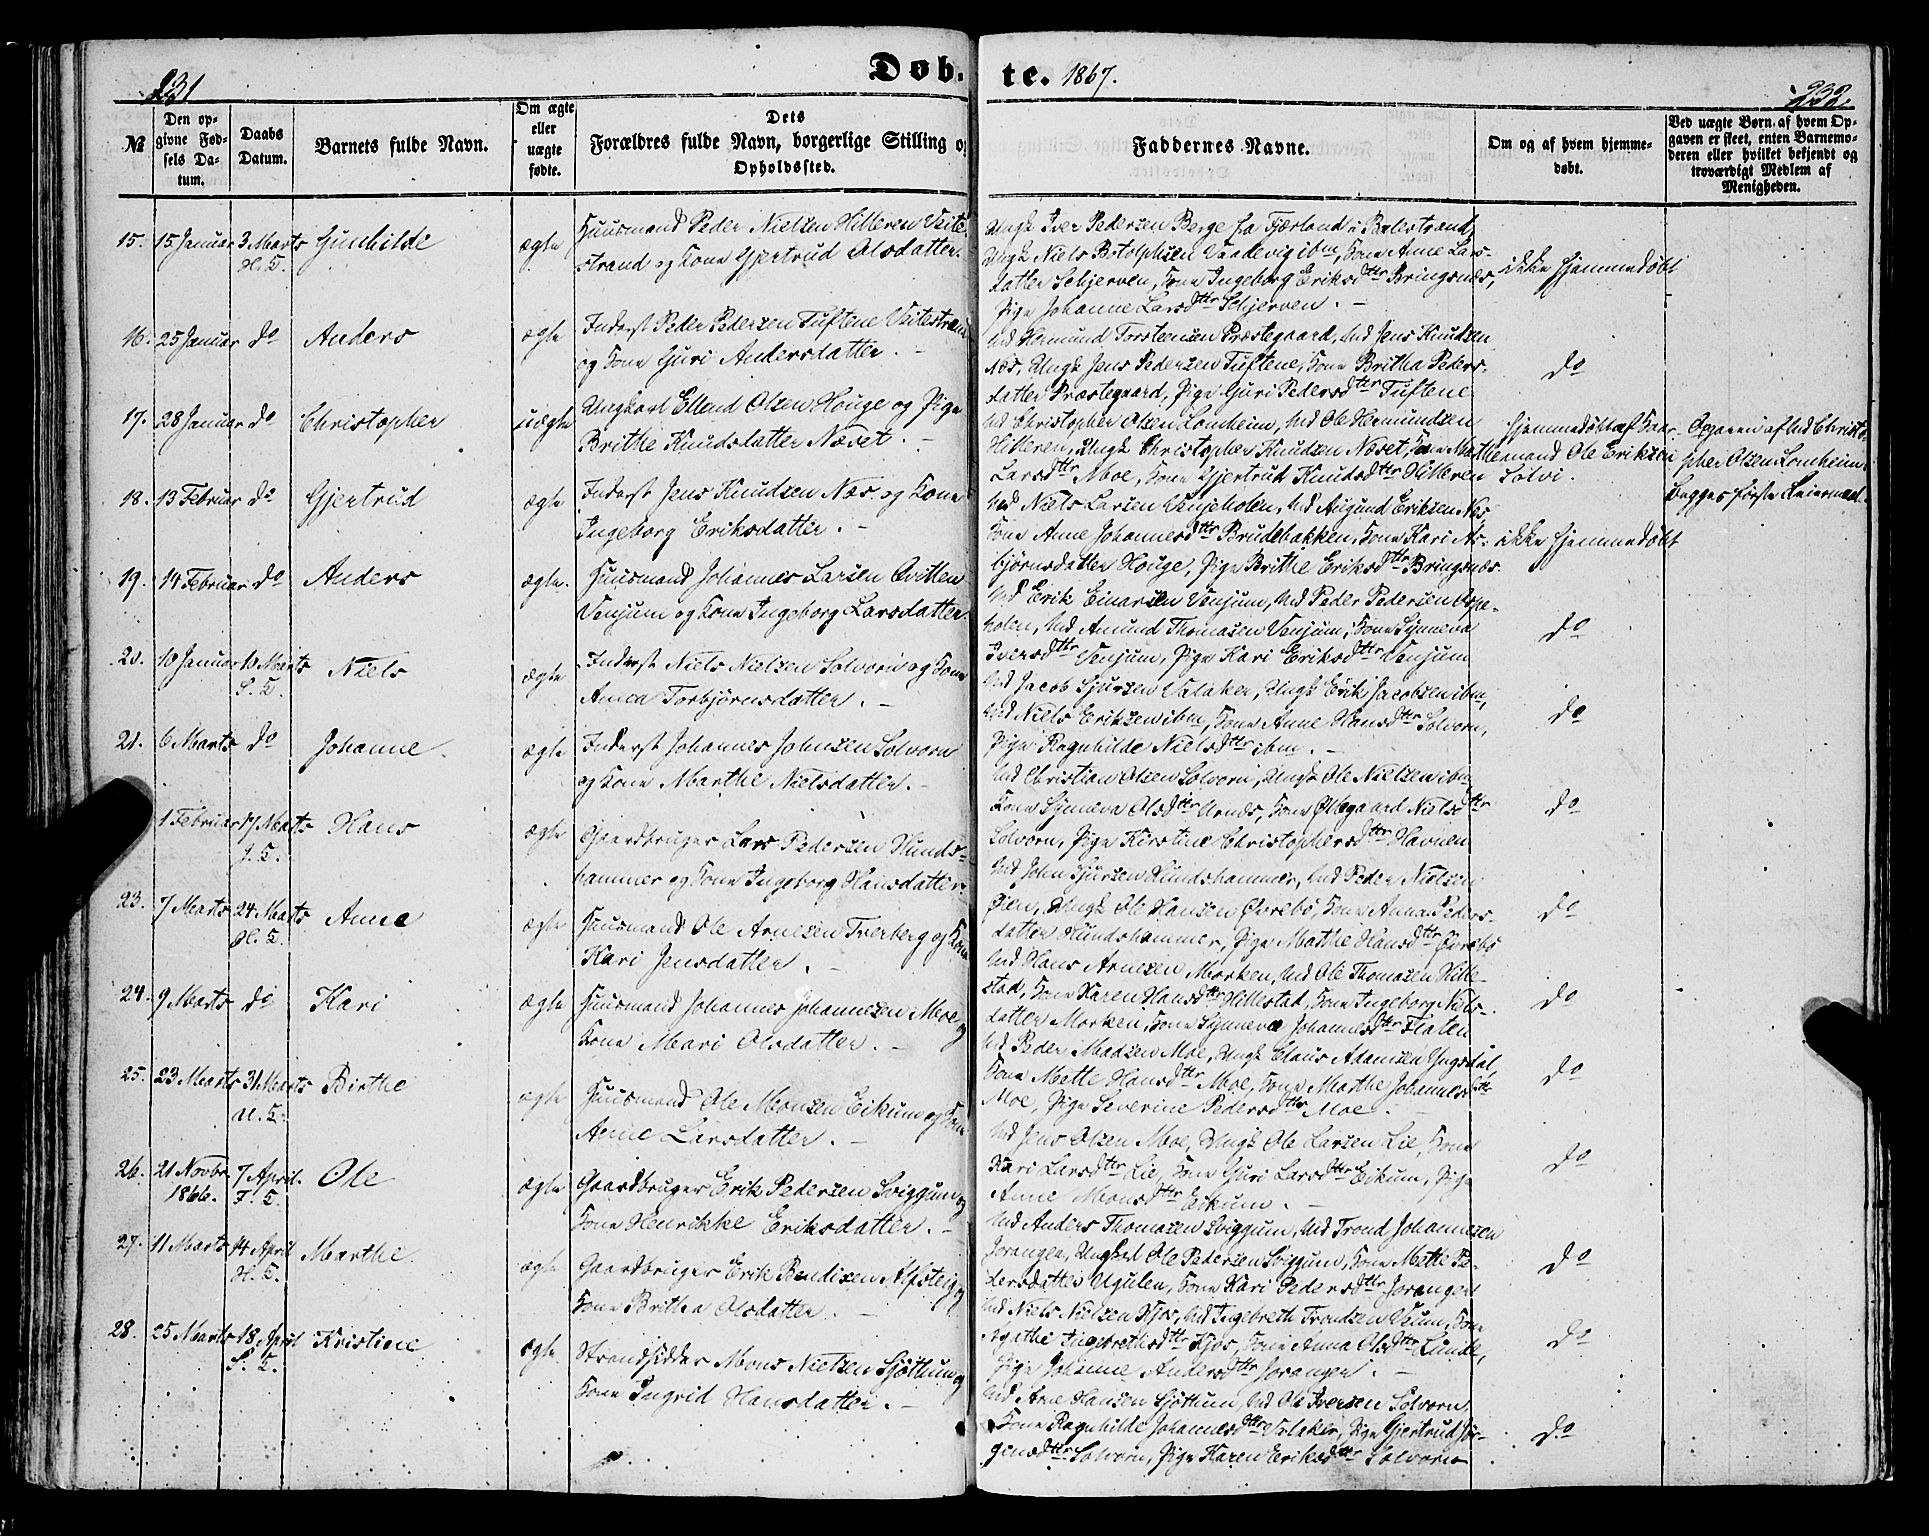 231
Døb-
te. 1867.
232.
№
Den op-
givne Fød-
sels Da-
tum.
Daabs
Datum.
Barnets fulde Navn.
Om ægte
eller
uægte
fødte.
Dets
Forældres fulde Navn, borgerlige Stilling og
Opholdssted.
Faddernes Navne.
Om og af hvem hjemme-
døbt.
Ved uægte Børn af hvem Op-
gaven er skeet, enten Barnemo-
deren eller hvilket bekjendt og
troværdigt Medlem af
Menigheden.
15. 15 Januar 3. Marts Gunhilde ægte Huusmand Peder Nielsen Hilleren Veite-
H. K. strand og Kone Gjertrud Olsdatter.
Ungk Iver Pedersen Berge fra Fjærland i Balestrand,
Ungk Niels Botolphsen Vandevig ibm, Kone Anne Lars-
datter Schjerven, Kone Ingeborg Eriksdtter Bringsnæs,
Pige Johanne Larsdtter Schjerven. —
ikke hjemmedøbt
16. 25 Januar do Anders ægte Inderst Peder Pedersen Tuftene Veitestrand
og Kone Guri Andersdatter. —
Md Hermund Torsteensen Præstegaard, Md Jens Knudsen
Næs, Ungk Jens Pedersen Tuftene, Kone Britha Peders-
datter Præstegaard, Pige Guri Pedersdtter Tuftene
do
17. 28 Januar do Christopher uægte Ungkarl Ellend Olsen Houge og Pige
Brithe Knudsdatter Næset. —
Md Christopher Olsen Lomheim, Md Ole Hermundsen
Hilleren, Ungk Christopher Knudsen Næset, Kone Marthe
Larsdtter Moe, Kone Gjertrud Knudsdtter Hilleren
hjemmedøbt af Huus-
mand Ole Eriksen
Solvi.
Opgaven af Md Christo-
pher Olsen Lomheim.
Begges første Leiermaal.
18. 13 Februar do Gjertrud ægte Inderst Jens Knudsen Næs og Kone
Ingeborg Eriksdatter. —
Md Niels Larsen Venjeholen, Md Augund Eriksen Næs
Kone Anne Johannesdtter Brudebakken, Kone Kari As-
bjørnsdatter Houge, Pige Brithe Eriksdtter Bringsnæs.
ikke hjemmedøbt
19. 14 Februar do Anders ægte. Huusmand Johannes Larsen Qvitten
Venjum og Kone Ingeborg Larsdatter.
Md Erik Einarsen Venjum, Md Peder Pedersen Espe-
holen, Md Amund Thomasen Venjum, Kone Synneva
Iversdtter Venjum, Pige Kari Eriksdtter Venjum
do
20. 10 Januar 10 Marts Niels ægte Inderst Niels Nielsen Solvorn og Kone
S. K. Anna Torbjørnsdatter. —
Md Jacob Sjursen Valaker, Ungk Erik Jacobsen ibm,
Md Niels Eriksen ibm, Kone Anne Hansdtter Solvorn,
Pige Ragnhilde Nielsdtter ibm. —
do
21. 6 Marts do Johanne ægte Inderst Johannes Johnsen Solvorn
og Kone Marthe Nielsdatter. —
Md Christian Olsen Solvorn, Ungk Ole Nielsen ibm,
Kone Synneva Olsdtter Urnæs, Kone Oldegaard Nielsdtter
Solvorn, Pige Kirstine Christophersdtter Havnen
do
1 Februar 17 Marts Hans ægte Gaardbruger Lars Pedersen Hunds-
J. K. hammer og Kone Ingeborg Hansdatter.
Md John Sjursen Hundshammer, Md Peder Nielsen
Øien, Ungk Ole Hansen Øvrebø, Kone Anna Peders-
datter Hundshammer, Pige Marthe Hansdtter Øvrebø
do
23. 7 Marts 24 Marts Anne ægte Huusmand Ole Arnesen Tverberg og Kone
H. K. Kari Jensdatter. —
Md Hans Arnesen Morken, Md Ole Thomasen Hille-
stad, Kone Karen Hansdtter Hillestad, Kone Ingeborg Niels-
datter Morken, Kone Synneva Johannesdtter Flaten
do
24. 9 Marts do Kari ægte Huusmand Johannes Johannesen Moe og
Kone Mari Olsdatter. —
Md Peder Madsen Moe, Ungk Claus Adamsen Yngsdal,
Kone Mette Hansdtter Moe, Kone Marthe Johannesdtter
Moe, Pige Severine Pedersdtter Moe. —
do
25. 23 Marts 31 Marts Birthe ægte Huusmand Ole Monsen Eikum og Kone
H. K. Anne Larsdatter. —
Md Jens Olsen Moe, Ungk Ole Larsen Lie, Kone
Kari Larsdtter Lie, Kone Guri Larsdtter Eikum, Pige
Anne Monsdtter Eikum. —
do
26. 21 Novbr. 7 April. Ole ægte Gaardbruger Erik Pedersen Sviggum og
1866. F. K. Kone Henrikke Eriksdatter. —
Md Anders Thomasen Sviggum, Md Trond Johannesen
Joranger, Ungkarl Ole Pedersen Sviggum, Kone Mette Pe-
dersdatter Ugulen, Kone Kari Pedersdtter Joranger
do
27. 11 Marts 14 April Marthe ægte Gaardbruger Erik Bendixen Alsteig og
H. K. Kone Britha Olsdatter. —
Md Niels Nielsen Kjos, Md Ingebreth Trondsen Veum, Kone
Agathe Ingebrethsdtter Kjos, Kone Anna Olsdtter Linde,
Pige Johanne Andersdtter Joranger. —
do
28. 25 Marts 18 April Kristine ægte Strandsidder Mons Nielsen Sjøttum og
S. K. Kone Ingrid Hansdatter. —
Md Arne Hansen Sjøttum, Md Ole Iversen Solvorn,
Kone Ragnhilde Johannesdtter Valaker, Pige Gjertrud Jør-
gensdtter Solvorn, Pige Karen Eriksdtter Solvorn
do